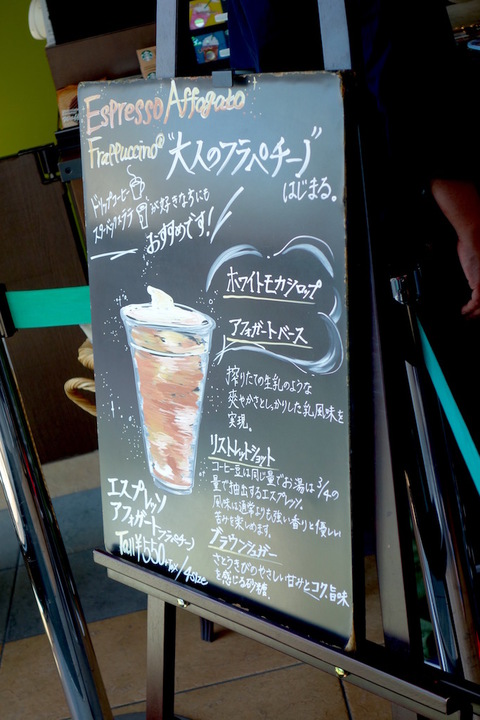 Espresso Affogato
Frappuccino® "大人のフラペチーノ"
はじまる。
ドリップコーヒー
スターバックスラテ が好きな方にも
おすすめです!
ホワイトモカシロップ
アフォガートベース
搾りたての生乳のような
爽やかさとしっかりした乳風味を
実現。
リストレットショット
コーヒー豆は同じ量でお湯は3/4の
量で抽出するエスプレッソ。
風味は通常よりも強い香りと優しい
苦みを楽しめます。
ブラウンシュガー
さとうきびのやさしい甘みとコク旨味
を感じる砂糖。
エスプレッソ
アフォガートフラペチーノ
Tall ¥550+tax/4size